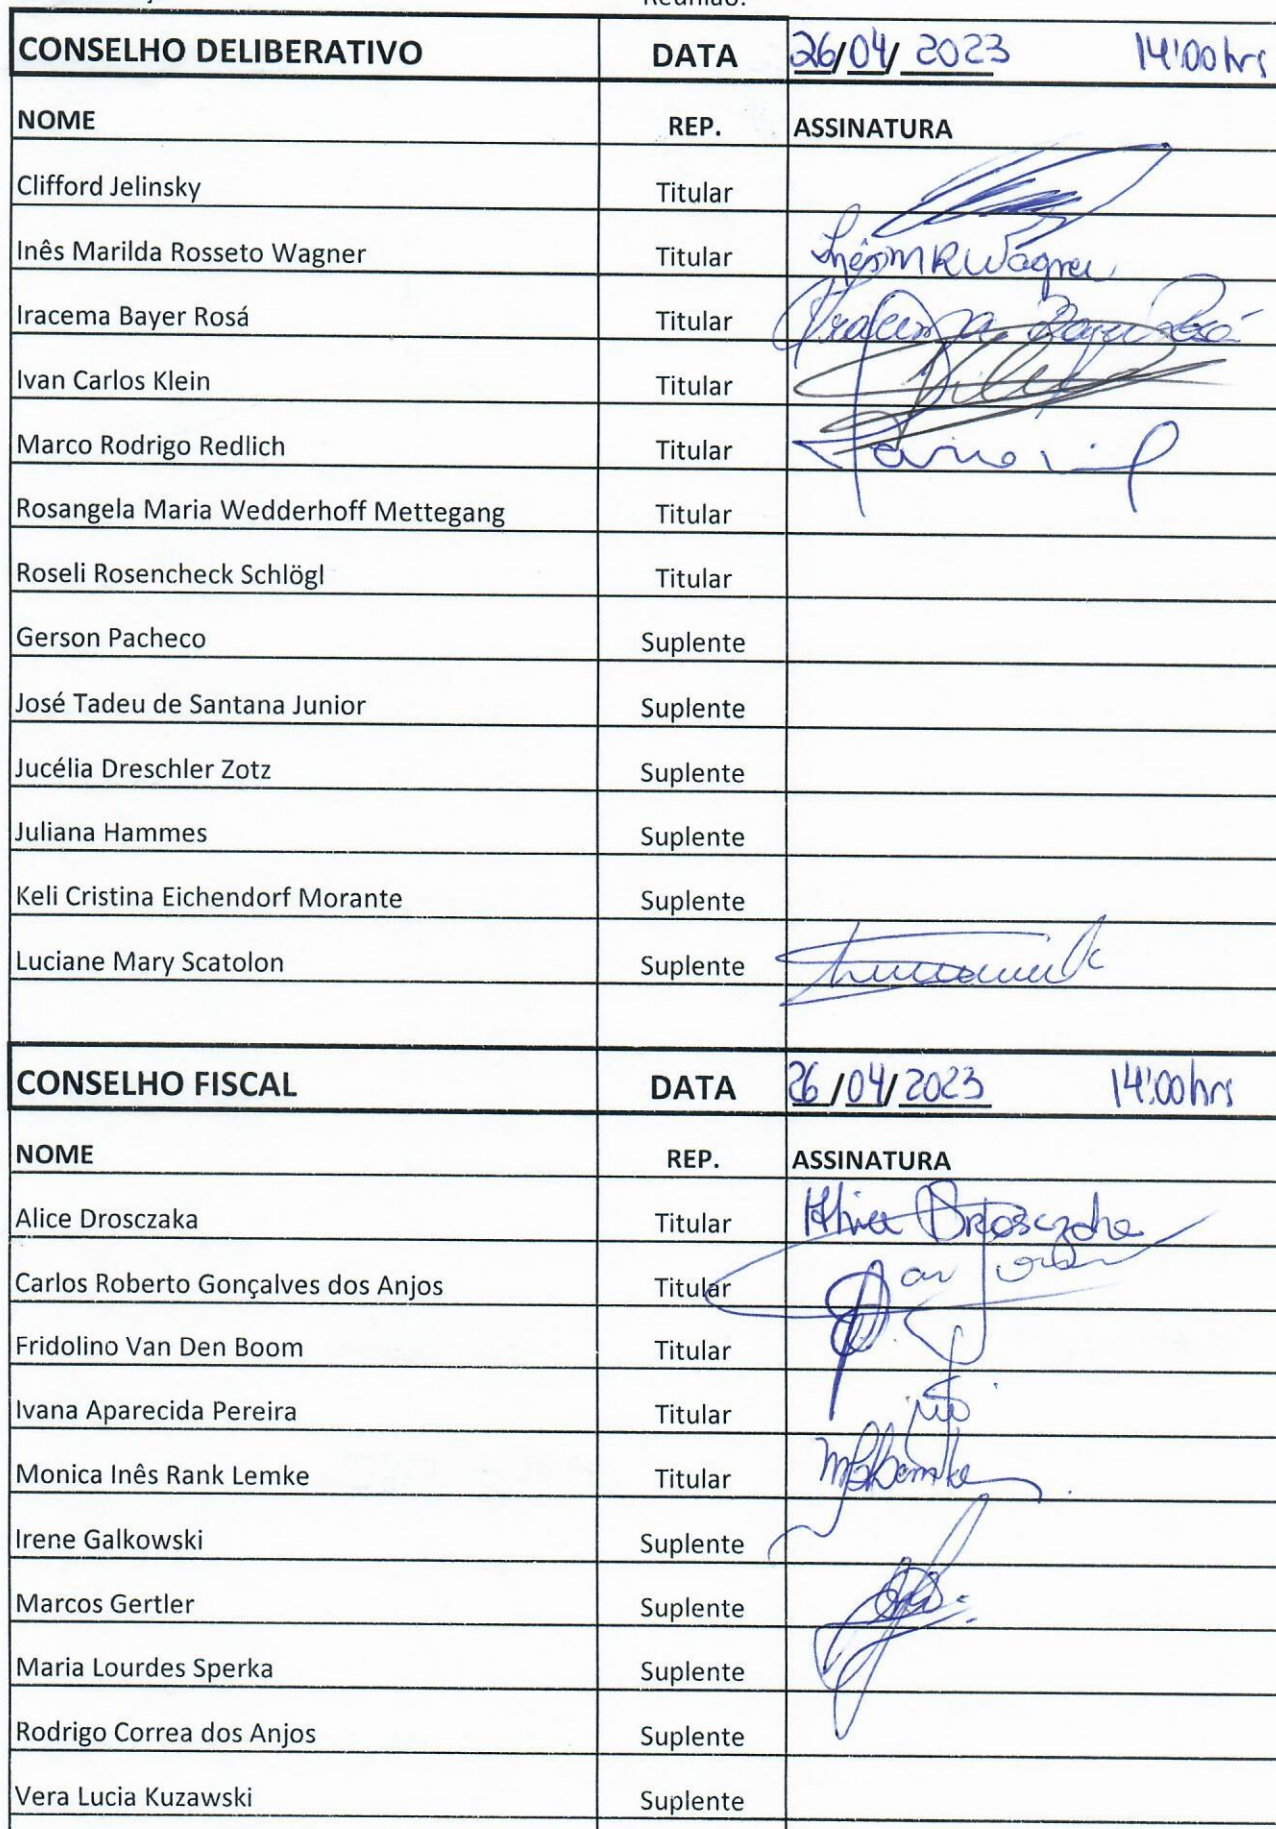 Reunião:
CONSELHO DELIBERATIVO DATA 26/04/2023 14:00hrs
NOME REP. ASSINATURA
Clifford Jelinsky Titular
Inês Marilda Rosseto Wagner Titular InêsMRWagner
Iracema Bayer Rosá Titular Iracema Bayer Rosá
Ivan Carlos Klein Titular
Marco Rodrigo Redlich Titular
Rosangela Maria Wedderhoff Mettegang Titular
Roseli Rosencheck Schlögl Titular
Gerson Pacheco Suplente
José Tadeu de Santana Junior Suplente
Jucélia Dreschler Zotz Suplente
Juliana Hammes Suplente
Keli Cristina Eichendorf Morante Suplente
Luciane Mary Scatolon Suplente
CONSELHO FISCAL DATA 26/04/2023 14:00hrs
NOME REP. ASSINATURA
Alice Drosczaka Titular Alice Drosczaka
Carlos Roberto Gonçalves dos Anjos Titular
Fridolino Van Den Boom Titular
Ivana Aparecida Pereira Titular
Monica Inês Rank Lemke Titular
Irene Galkowski Suplente
Marcos Gertler Suplente
Maria Lourdes Sperka Suplente
Rodrigo Correa dos Anjos Suplente
Vera Lucia Kuzawski Suplente